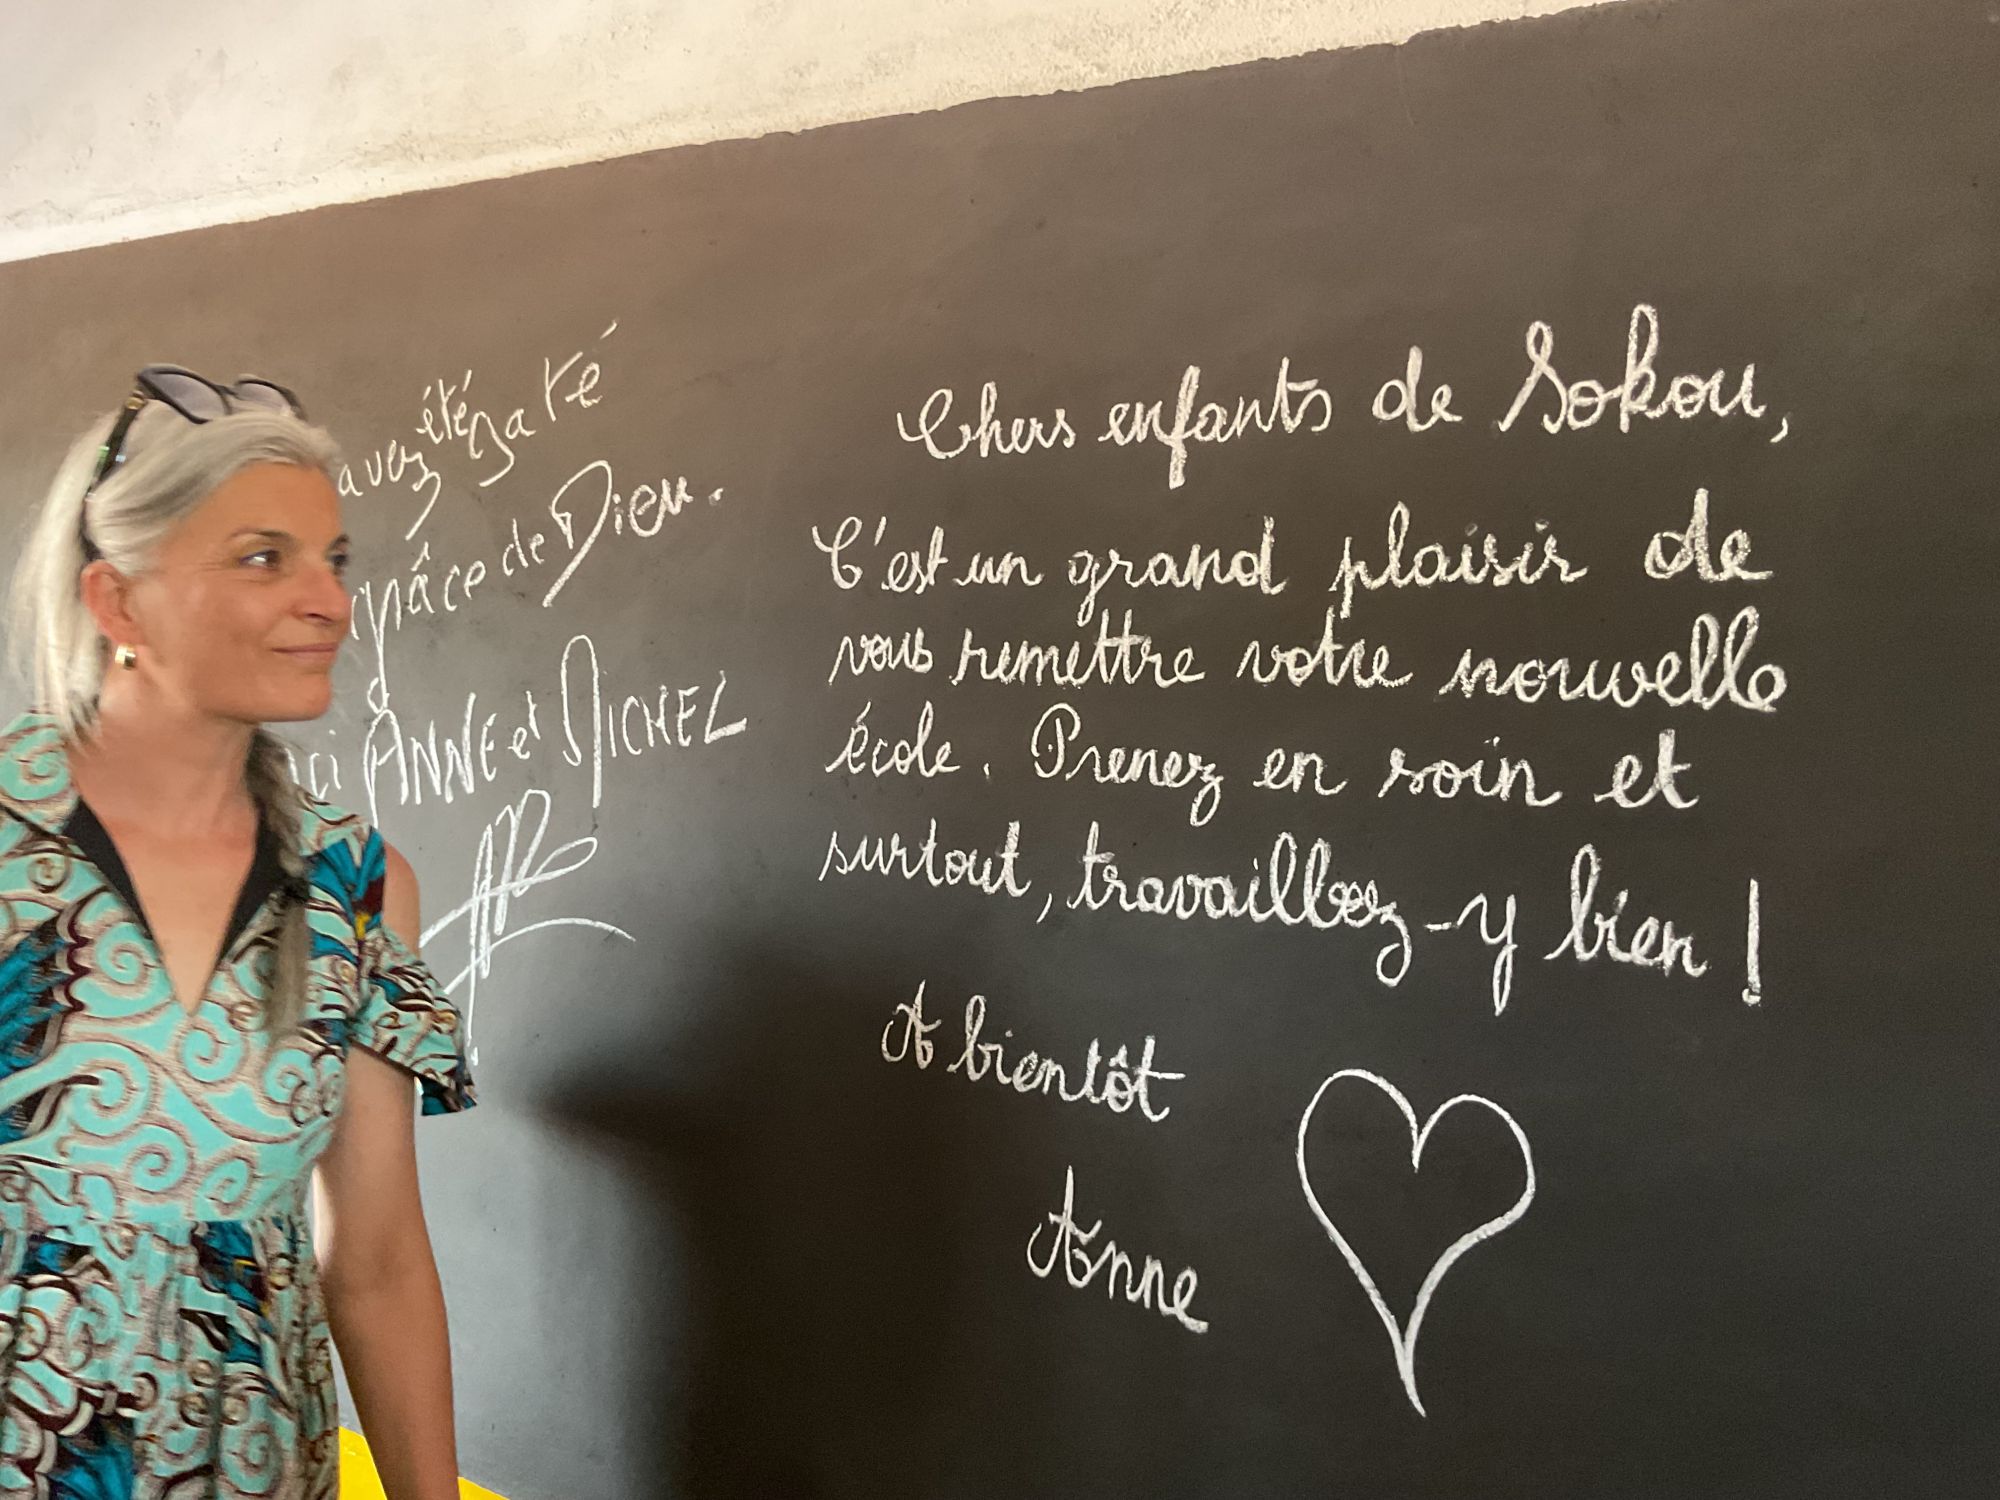 avez été gaté
grâce de Dieu.
ANNE et MICHEL
Chers enfants de Sokou,
C'est un grand plaisir de
vous remettre votre nouvelle
école. Prenez en soin et
surtout, travaillez-y bien !
A bientôt
Anne